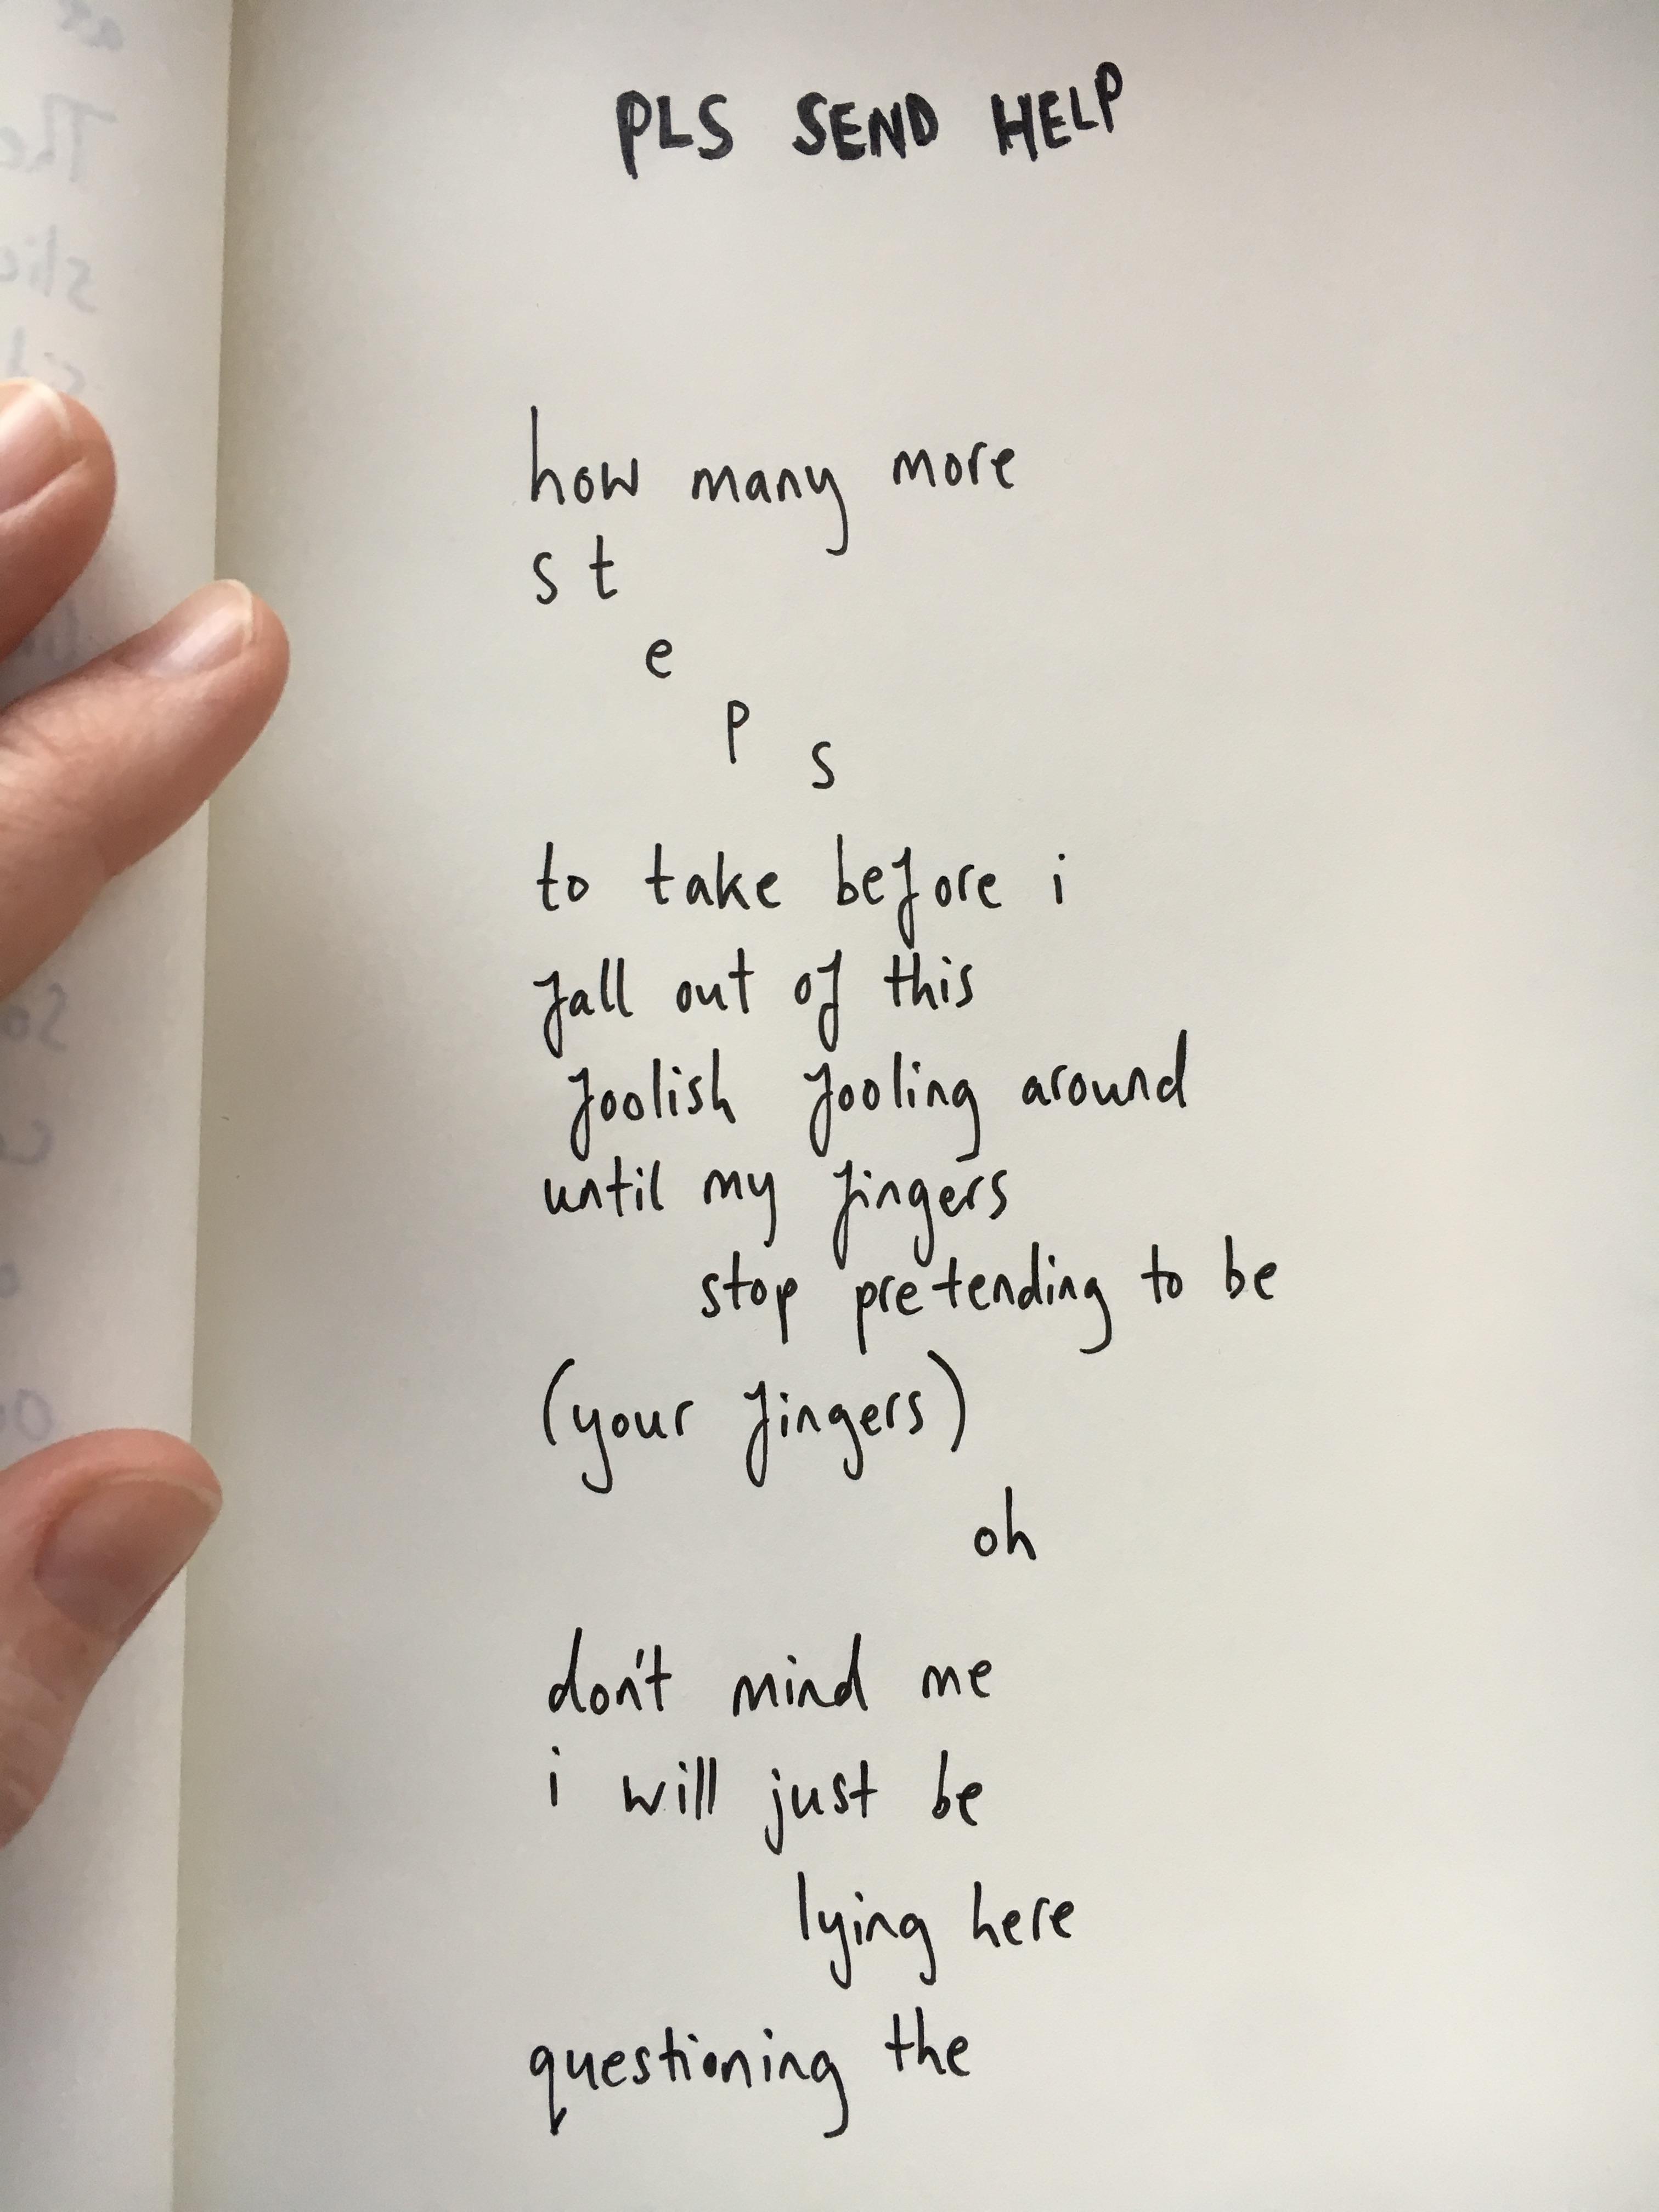 PLS SEND HELP
how many more
s t
e
p
s
to take before i
fall out of this
foolish fooling around
until my fingers
stop pretending to be
(your fingers)
oh
don't mind me
i will just be
lying here
questioning the